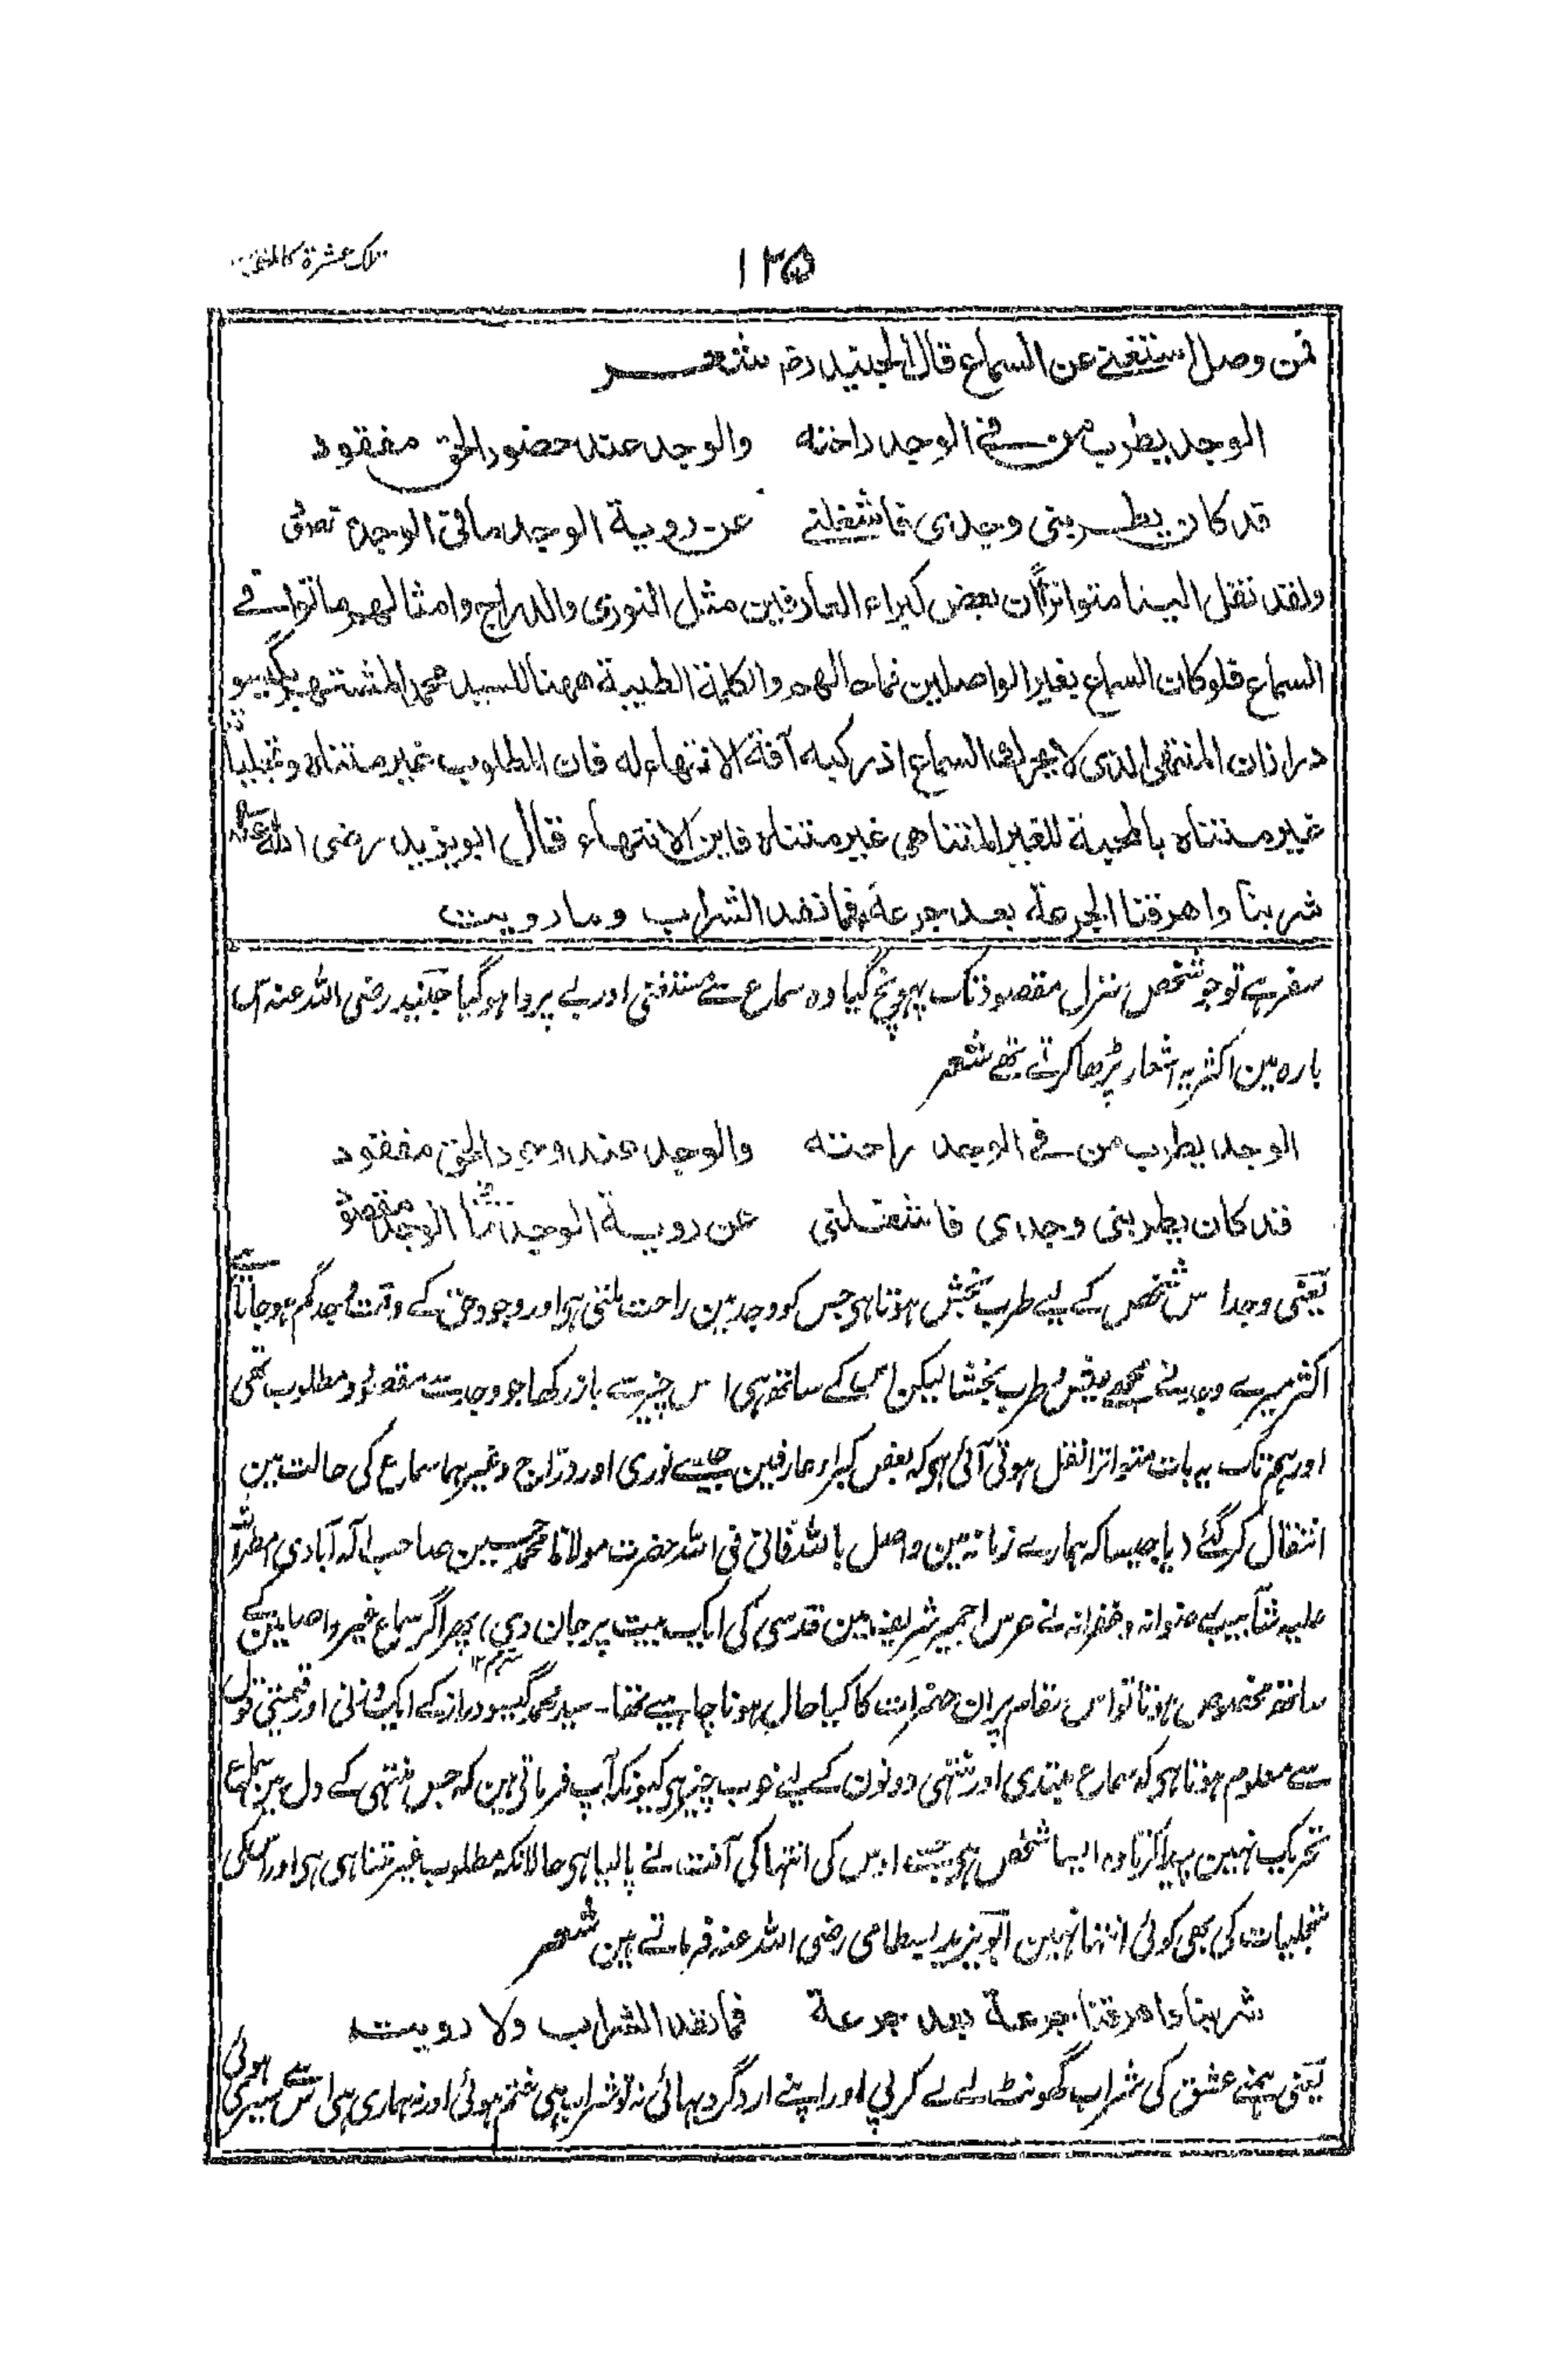 ۱۲۵
تلک عشرۃ کاملۃ
فمن وصل استغنی عن السماع قال الجنید رض شعر
الوجد یطرب من فی الوجد راحته والوجد عند حضور الحق مفقود
قد کان یطربنی وجدی فاشغلنی عن رویة الوجد مافی الوجد
ولقد نقل الینا متواترًا ان بعض کبراء العارفین مثل النوری والدراج وامثالهم ماتوا فی
السماع فلو کان السماع بغیر الواصلین فما حالهم والکلمة الطیبة ههنا للسید محمد المشتهر بگیسو
دراز ان المنتهی الذی لا یحرکه السماع اذ رکبه آفة الانتهاء له فان المطلوب غیر متناه وتجلیاته
غیر متناه بالمحبة للغیر المتناهی غیر متناه فاین الانتهاء قال ابویزید رضی الله عنه
شربنا واهرقنا الجرعة بعد جرعة فما نفد الشراب وما رویت
سفر ہے تو جو شخص منزل مقصود تک پہونچ گیا وہ سماع سے مستغنی اور بے پروا ہوگیا جنید رضی اللہ عنہ اس
بارہ مین اکثر یہ اشعار پڑھا کرتے تھے شعر
الوجد یطرب من فی الوجد راحته والوجد عند وجود الحق مفقود
قد کان یطربنی وجدی فاشغلنی عن رویة الوجد الوجد مقصود
یعنی وجد اس شخص کے لیے طرب بخش ہوتا ہی جس کو وجد مین راحت ملتی ہی اور وجود حق کے وقت وجد گم ہو جاتا ہے
اکثر میرے وجد نے مجھے طرب بخشا لیکن اس کے ساتھ ہی اس چیز سے باز رکھا جو وجد سے مقصود و مطلوب تھی
اور ہم تک یہ بات متواتر نقل ہوتی آئی ہی کہ بعض کبراء عارفین جیسے نوری اور دراج وغیرہما سماع کی حالت مین
انتقال کر گئے (یا جیسا کہ ہمارے زمانہ مین واصل باللہ فانی فی اللہ حضرت مولانا محمد حسین صاحب الہ آبادی امطر اللہ
علیہ شآبیب رضوانہ و غفرانہ نے عرس اجمیر شریف مین قدسی کی ایک بیت پر جان دی) پھر اگر سماع غیر واصلین کے
ساتھ مخصوص ہوتا تو اس مقام پر ان حضرات کا کیا حال ہونا چاہیے تھا۔ سید محمد گیسو دراز کے ایک وزنی اور قیمتی قول
سے معلوم ہوتا ہی کہ سماع مبتدی اور منتہی دونون کے لیے خوب چیز ہی کیونکہ آپ فرماتی ہین کہ جس منتہی کے دل مین سماع
تحریک نہین پیدا کرتا وہ ایسا شخص ہی جسے اوس کی انتہا کی آفت نے پالیا ہی حالانکہ مطلوب غیر متناہی ہی اور اسکی
تجلیات کی بھی کوئی انتہا نہین ابویزید بسطامی رضی اللہ عنہ فرماتے ہین شعر
شربنا واهرقنا جرعة بعد جرعة فما نفد الشراب ولا رویت
یعنی ہمنے عشق کی شراب گھونٹ لے لے کر پی اور اپنے ارد گرد بہائی نہ تو شراب ہی ختم ہوئی اور نہ ہماری ہی اس سے سیری ہوئی